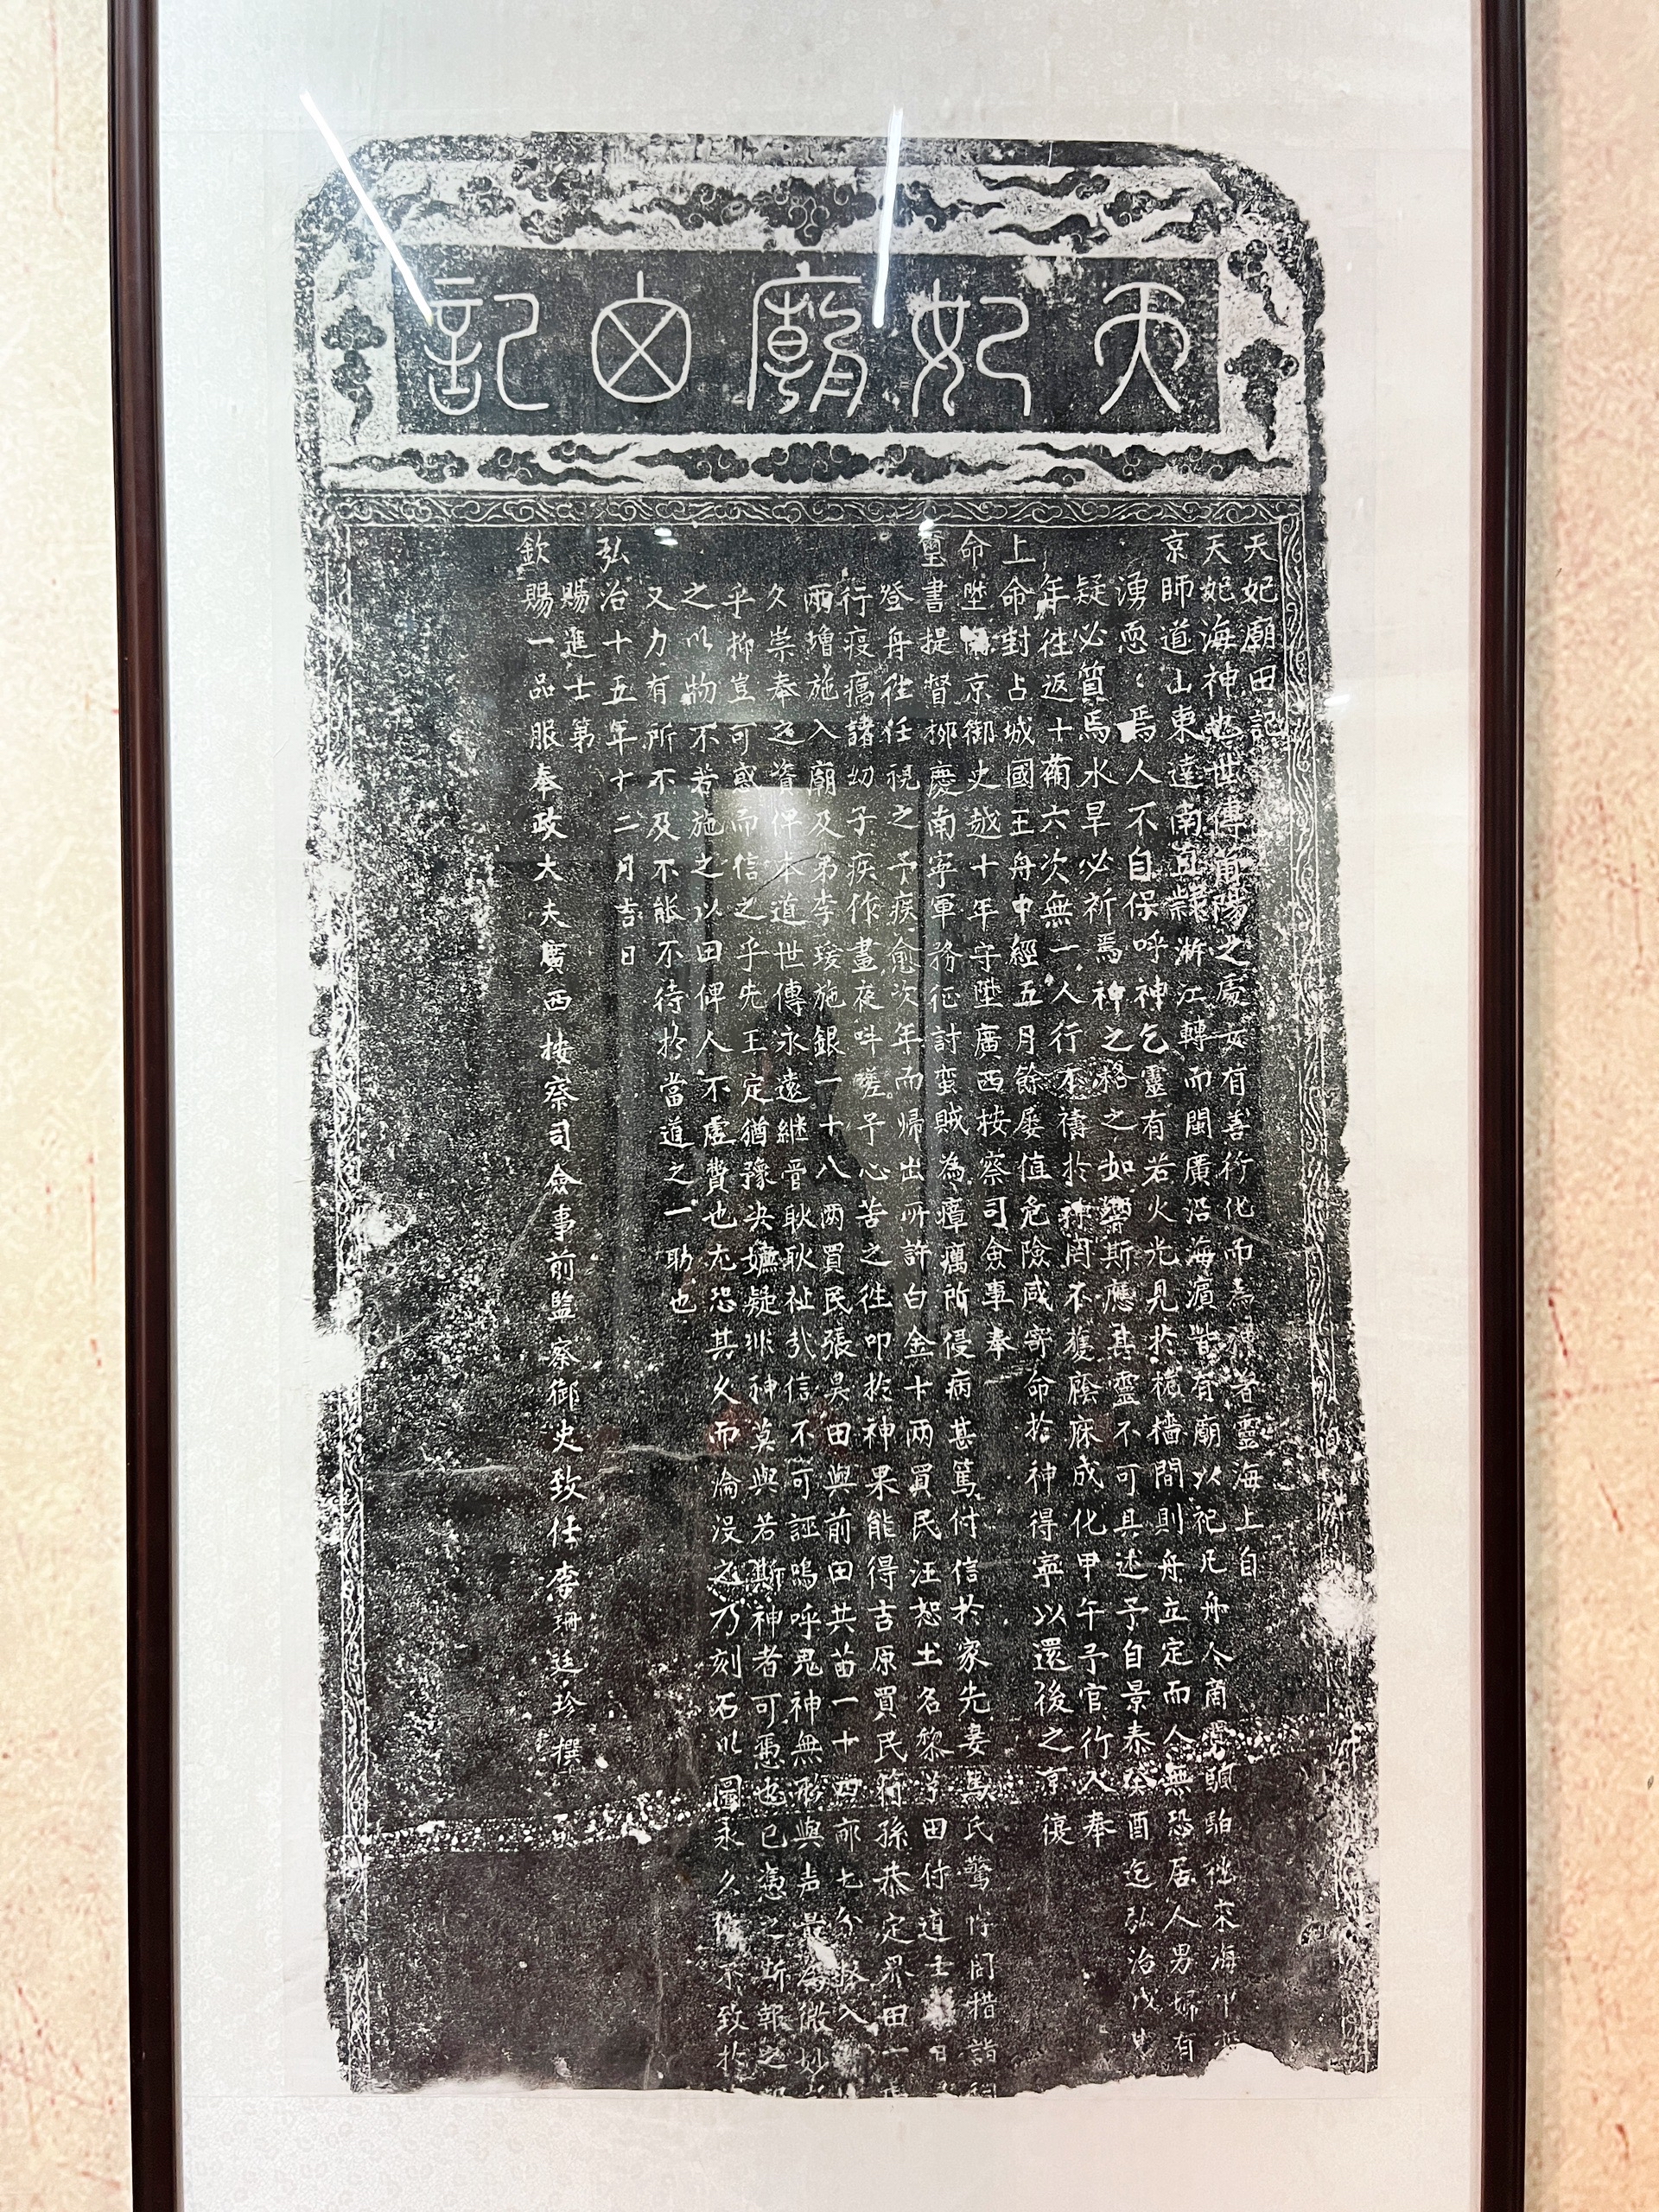 天妃廟田記
天妃廟田記
天妃海神也世傳莆陽之處女有善行化而為神著靈海上自
京師道山東達南直隸浙江轉而閩廣沿海濱皆有廟以祀凡舟人商賈駒駘往來海中
湧恧〻焉人不自保呼神乞靈有若火光見於檣檣間則舟立定而人無恐居人男婦有
疑必質焉水旱必祈焉神之格之如響斯應其靈不可具述予自景泰癸酉迄弘治戊
年往返十觔六次無一人行不禱於神罔不獲蔭庥成化甲午予官行人奉
上命封占城國王舟中經五月餘屢值危險咸寄命於神得寧以還後之京復
命陞南京御史越十年守陞廣西按察司僉事奉
璽書提督柳慶南寧軍務征討蛮賊為瘴癘所侵病甚篤付信於家先妻馬氏驚惶罔措詣
登舟往任視之予疾愈次年而歸出所許白金十两買民汪恕土名黎芋田付道士
行疫癘諸幼子疾作晝夜呌嗟予心苦之往叩於神果能得吉原買民符孫恭定昇田一
兩增施入廟及弟李瑗施銀一十八两買民張昊田與前田共苗一十四畝七分增入
久崇奉之資俾本道世傳永遠継晉耿耿祉於信不可誣嗚呼鬼神無形與声最為微妙
乎抑豈可惑而信之乎先王定猶豫决嫌疑非神莫與若斯神者可慿也已慿之斯報之
之以物不若施之以田俾人不虛費也尤恐其久而淪没之乃刻石以圖永久不致於
又力有所不及不能不待於當道之一助也
弘治十五年十二月吉日
賜進士第
欽賜一品服奉政大夫廣西按察司僉事前監察御史致仕李珊廷珍撰